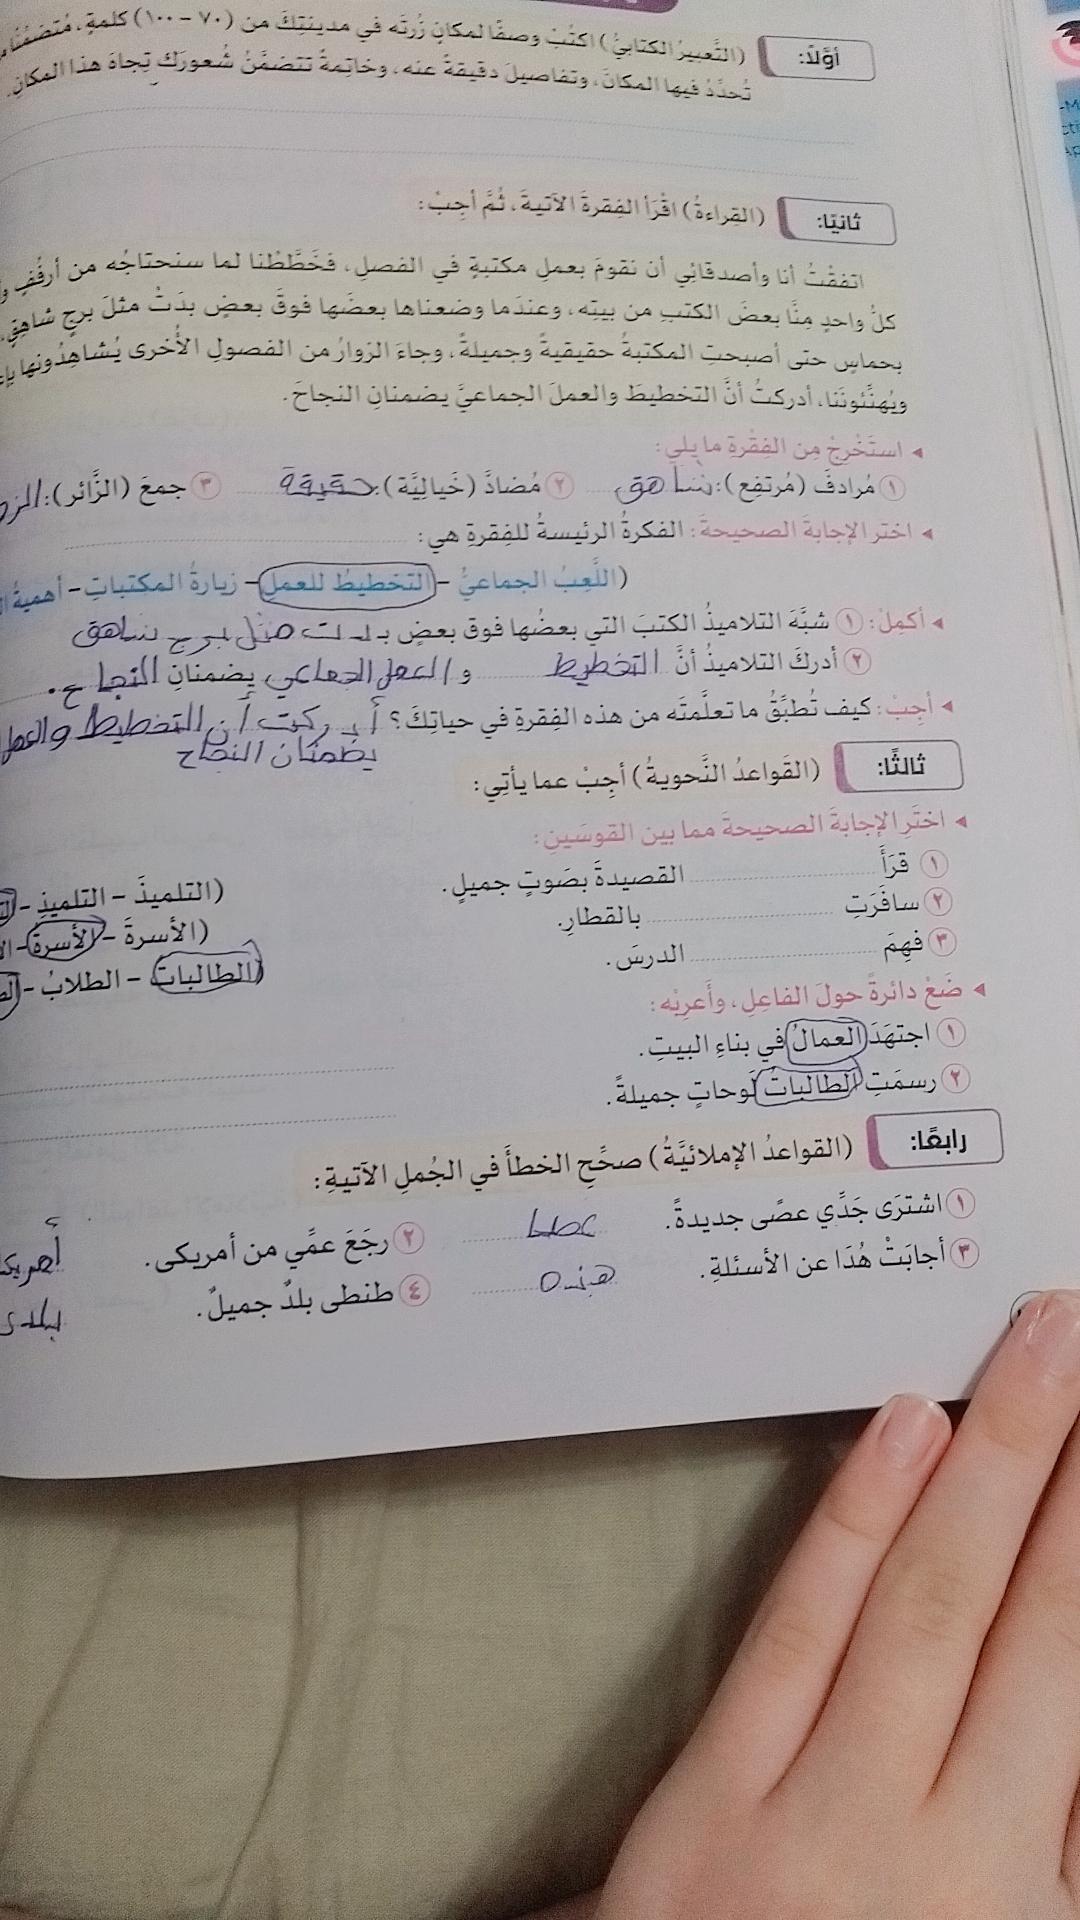 أوَّلًا: (التَّعبيرُ الكتابيُّ) اكتُبْ وصفًا لمكانٍ زُرتَه في مدينتِكَ من (٧٠ – ١٠٠) كلمةٍ، مُتضمِّنًا
تُحدِّدُ فيها المكانَ، وتفاصيلَ دقيقةً عنه، وخاتِمةً تتضمَّنُ شُعورَك تِجاهَ هذا المكانِ.
ثانيًا: (القِراءةُ) اقْرَأ الفِقرةَ الآتيةَ، ثُمَّ أجِبْ:
اتفقْتُ أنا وأصدقائِي أن نقومَ بعملِ مكتبةٍ في الفصلِ، فخَطَّطْنا لما سنحتاجُه من أرفُفٍ
كلُّ واحدٍ مِنَّا بعضَ الكتبِ من بيتِه، وعندَما وضعناها بعضَها فوقَ بعضٍ بدَتْ مثلَ برجٍ شاهِقٍ،
بحماسٍ حتى أصبحتِ المكتبةُ حقيقيةً وجميلةً، وجاءَ الزوارُ من الفصولِ الأُخرى يُشاهِدُونها
ويُهنِّئُونَنا، أدركتُ أنَّ التخطيطَ والعملَ الجماعيَّ يضمنانِ النجاحَ.
◂ استَخْرِجْ مِن الفِقْرةِ ما يلي:
١ مُرادفَ (مُرتفِع): شاهق ٢ مُضادَّ (خَيالِيَّة): حقيقة ٣ جمعَ (الزَّائر):
◂ اختر الإجابةَ الصحيحةَ: الفكرةُ الرئيسةُ للفِقرةِ هي:
(اللَّعِبُ الجماعيُّ – التخطيطُ للعملِ – زيارةُ المكتباتِ – أهميةُ
◂ أكمِلْ: ١ شبَّهَ التلاميذُ الكتبَ التي بعضُها فوق بعضٍ بـ بدت مثل برج شاهق
٢ أدركَ التلاميذُ أنَّ التخطيط و العمل الجماعي يضمنانِ النجاح.
◂ أجِبْ: كيف تُطبِّقُ ما تعلَّمتَه من هذه الفِقرةِ في حياتِكَ؟ أدركت أن التخطيط والعمل
يضمنان النجاح
ثالثًا: (القَواعدُ النَّحويةُ) أجِبْ عما يأتِي:
◂ اختَرِ الإجابةَ الصحيحةَ مما بين القوسَينِ:
١ قرَأَ القصيدةَ بصَوتٍ جميلٍ. (التلميذَ – التلميذِ –
٢ سافَرَتِ بالقطارِ. (الأسرةَ – الأسرةُ –
٣ فهِمَ الدرسَ. (الطالباتُ – الطلابُ –
◂ ضَعْ دائرةً حولَ الفاعِلِ، وأعرِبْه:
١ اجتهَدَ العمالُ في بناءِ البيتِ.
٢ رسمَتِ الطالباتُ لَوحاتٍ جميلةً.
رابعًا: (القواعدُ الإملائيَّةُ) صحِّحِ الخطأَ في الجُملِ الآتيةِ:
١ اشترَى جَدِّي عصًى جديدةً. عصا ٢ رجَعَ عمِّي من أمريكى.
٣ أجابَتْ هُدَا عن الأسئلةِ. ٤ طنطى بلدٌ جميلٌ.